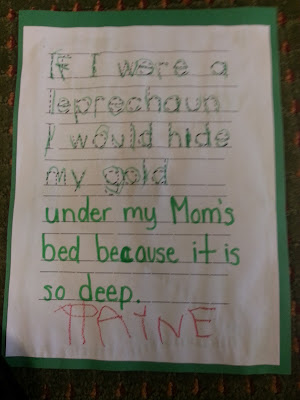 If I were a
leprechaun
I would hide
my gold
under my Mom's
bed because it is
so deep.
PAYNE